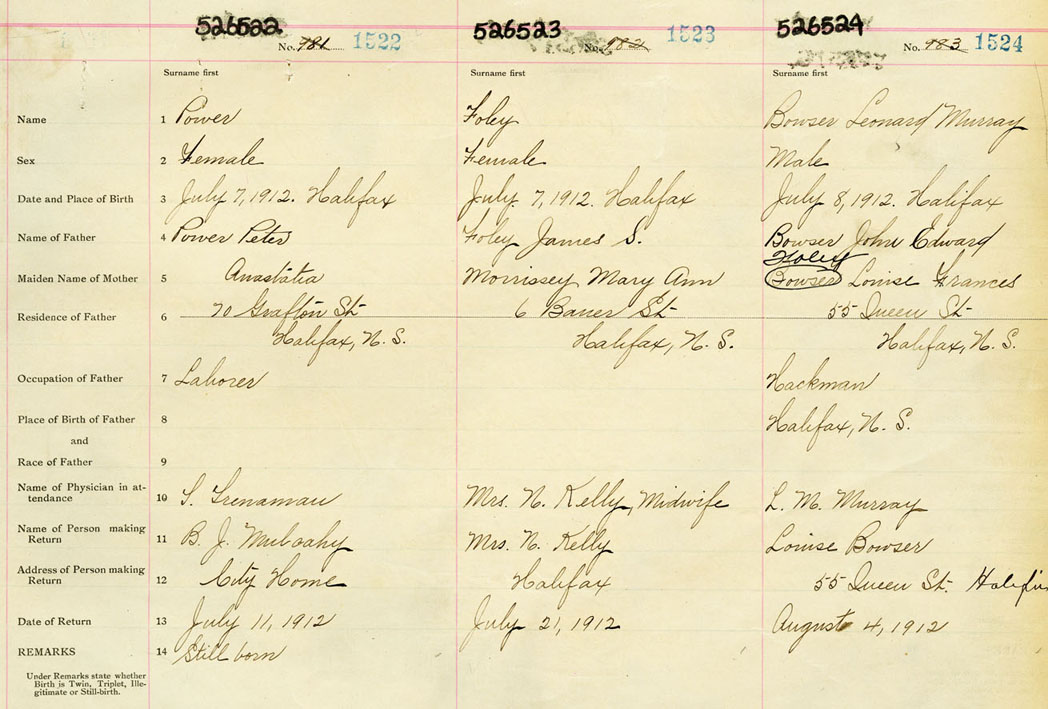 526522 526523 526524
No. 981 1522 No. 982 1523 No. 983 1524
Surname first Surname first Surname first
Name 1 Power Foley Bowser Leonard Murray
Sex 2 Female Female Male
Date and Place of Birth 3 July 7, 1912. Halifax July 7, 1912. Halifax July 8, 1912. Halifax
Name of Father 4 Power Peter Foley James S. Bowser John Edward
Foley
Maiden Name of Mother 5 Anastatia Morrissey Mary Ann Bowser Louise Frances
Residence of Father 6 70 Grafton St. 6 St. 55 Queen St.
Halifax, N. S. Halifax, N. S. Halifax, N. S.
Occupation of Father 7 Laborer Hackman
Place of Birth of Father 8 Halifax, N. S.
and
Race of Father 9
Name of Physician in at-
tendance 10 Trenaman Mrs. N. Kelly, Midwife L. M. Murray
Name of Person making
Return 11 B. J. Mulcahy Mrs. N. Kelly Louise Bowser
Address of Person making
Return 12 City Home Halifax 55 Queen St. Halifax
Date of Return 13 July 11, 1912 July 21, 1912 August 4, 1912
REMARKS 14 Still born
Under Remarks state whether
Birth is Twin, Triplet, Ille-
gitimate or Still-birth.